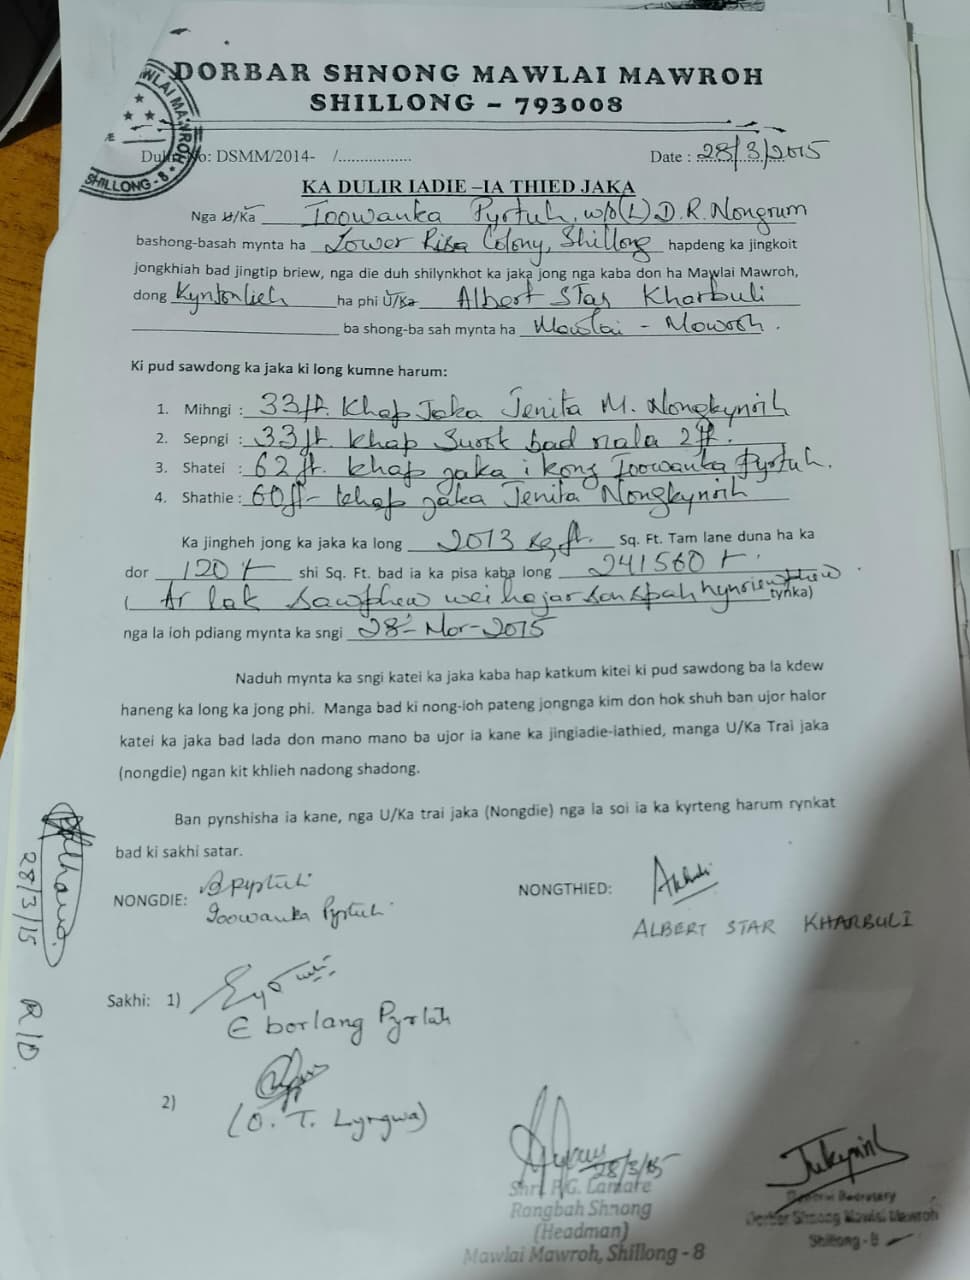 DORBAR SHNONG MAWLAI MAWROH
SHILLONG – 793008
WLAI MAWROH
SHILLONG-8
No: DSMM/2014- /.................
Date : 28/3/2015
KA DULIR IADIE –IA THIED JAKA
Nga U/Ka Ioowanka Pyrtuh, w/o (L) D.R. Nongrum
bashong-basah mynta ha Lower Risa Colony, Shillong hapdeng ka jingkoit
jongkhiah bad jingtip briew, nga die duh shilynkhot ka jaka jong nga kaba don ha Mawlai Mawroh,
dong Kyntonlieh ha phi U/Ka Albert Star Kharbuli
ba shong-ba sah mynta ha Mawlai - Mawroh.
Ki pud sawdong ka jaka ki long kumne harum:
1. Mihngi : 33ft. Khap Jaka Jenita M. Nongkynrih
2. Sepngi : 33 ft. khap Surok bad nala 2ft.
3. Shatei : 62 ft. khap jaka i kong Ioowanka Pyrtuh.
4. Shathie : 60ft- khap jaka Jenita Nongkynrih
Ka jingheh jong ka jaka ka long 2013 sq.ft. Sq. Ft. Tam lane duna ha ka
dor 120 t shi Sq. Ft. bad ia ka pisa kaba long 241560 t.
( Ar lak Sawphew wei hajar san spah hynriewphew tynka)
nga la ioh pdiang mynta ka sngi 28-Mar-2015
Naduh mynta ka sngi katei ka jaka kaba hap katkum kitei ki pud sawdong ba la kdew
haneng ka long ka jong phi. Manga bad ki nong-ioh pateng jongnga kim don hok shuh ban ujor halor
katei ka jaka bad lada don mano mano ba ujor ia kane ka jingiadie-iathied, manga U/Ka Trai jaka
(nongdie) ngan kit khlieh nadong shadong.
Ban pynshisha ia kane, nga U/Ka trai jaka (Nongdie) nga la soi ia ka kyrteng harum rynkat
bad ki sakhi satar.
NONGDIE: Pyrtuh
Ioowanka Pyrtuh
NONGTHIED:
ALBERT STAR KHARBULI
28/3/15
R/O.
Sakhi: 1)
Eborlang Pyrtuh
2)
(O. T. Lyngwa)
28/3/15
Shri P.G. Lamare
Rangbah Shnong
(Headman)
Mawlai Mawroh, Shillong - 8
Secretary
Dorbar Shnong Mawlai Mawroh
Shillong - 8